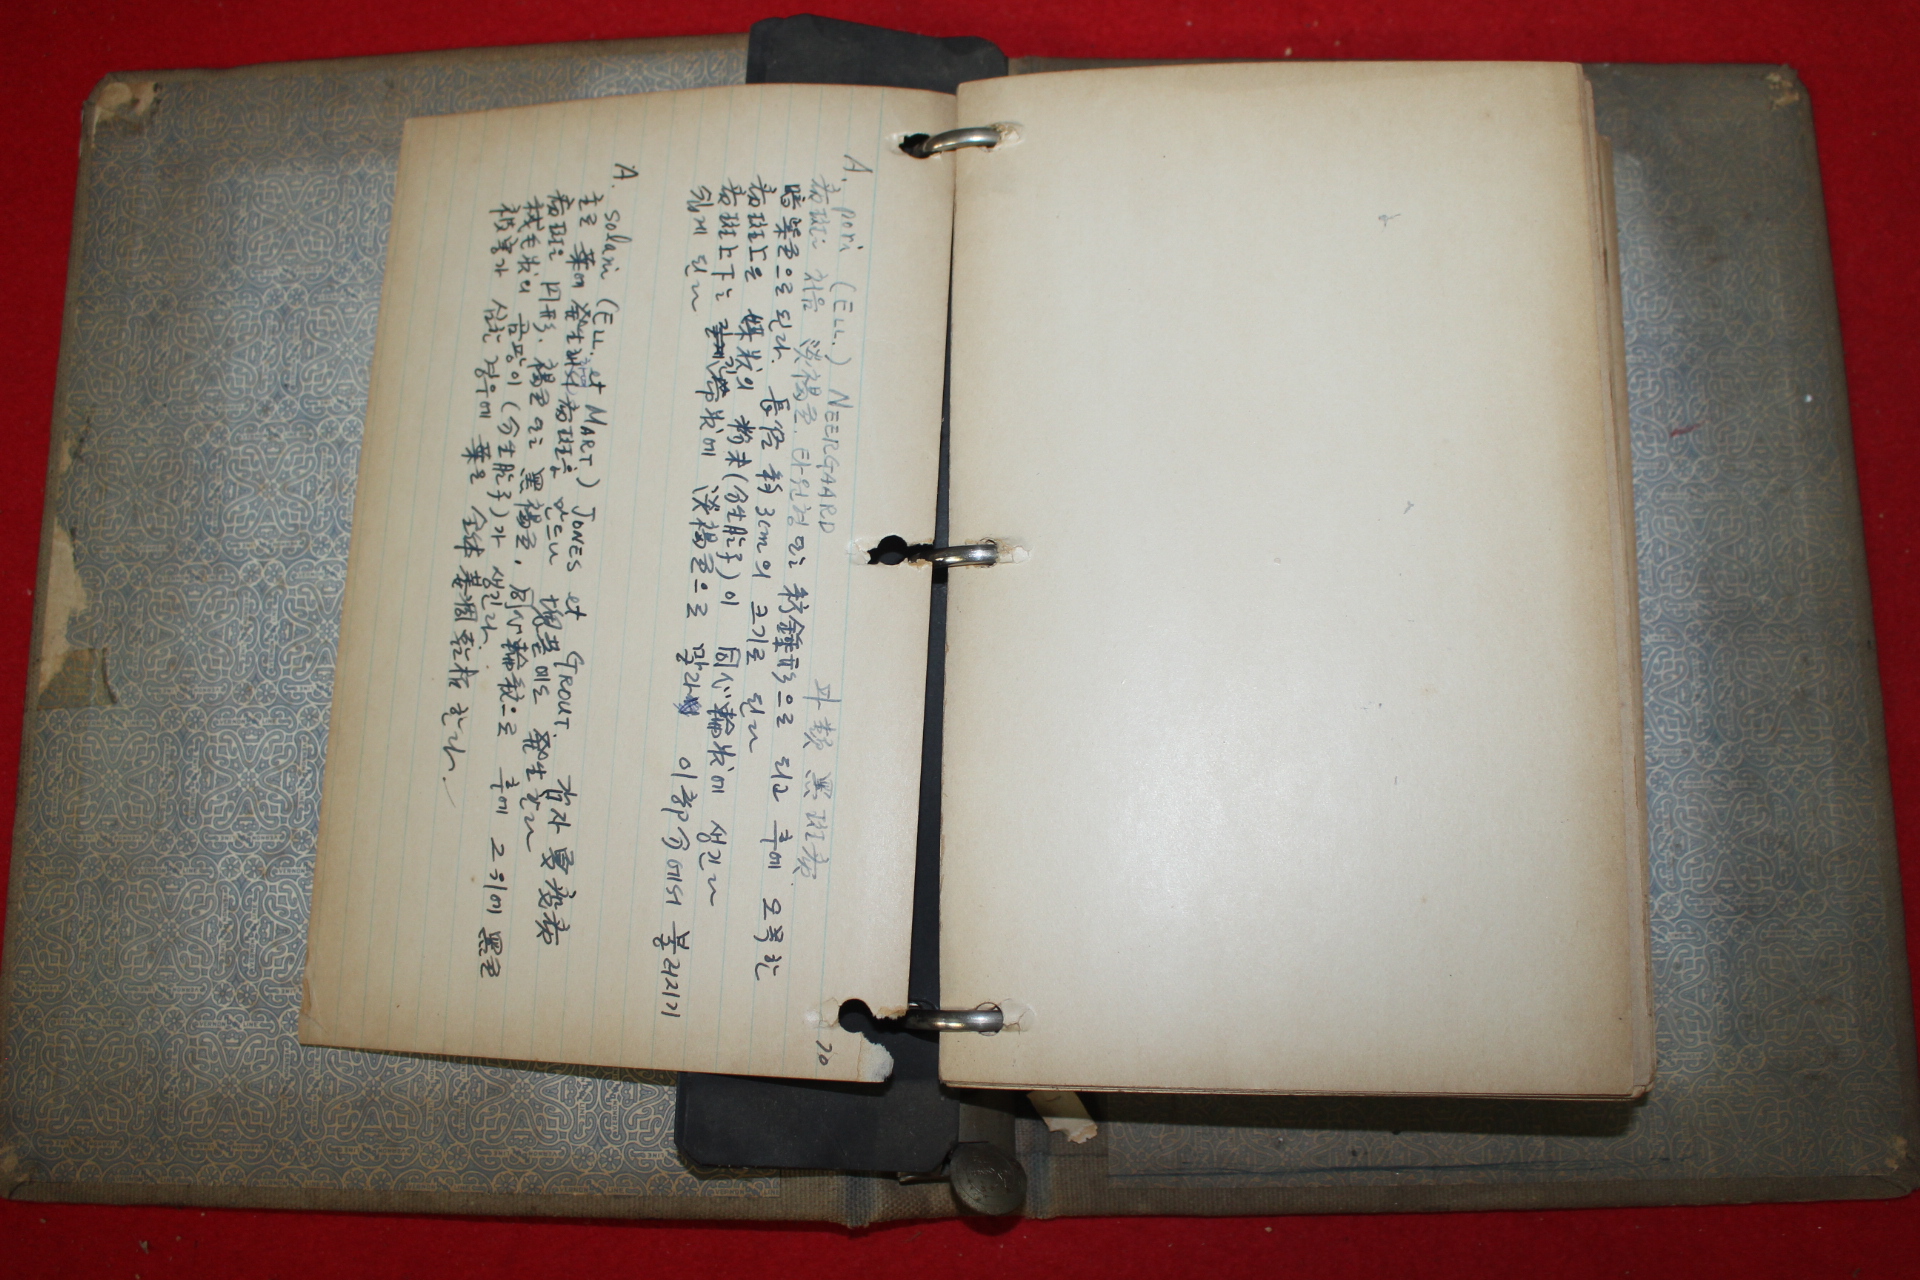 A. pori (ELL.) NEERGAARD 파類 黑斑病.
病斑은 처음 淡褐色 타원형 또는 紡錘形으로 되고 후에 오목한
暗紫色으로 된다. 長徑 約 3cm의 크기로 된다
病斑上은 煤狀의 粉末(分生胞子)이 同心輪狀에 생긴다
病斑上下는 긴 帶狀에 淡褐色으로 말라 이 部分에서 부러지기
쉽게 된다
A. solani (ELL. et MART.) JONES et GROUT. 감자 夏疫病
主로 葉에 發生 病斑은 만드나 塊莖에도 發生한다
病斑은 円形, 褐色 또는 黑褐色, 同心輪紋으로 후에 그 위에 黑色
絨毛狀의 곰팡이(分生胞子)가 생긴다.
被害가 심한 경우에 葉은 全体 萎凋 乾枯한다.
70